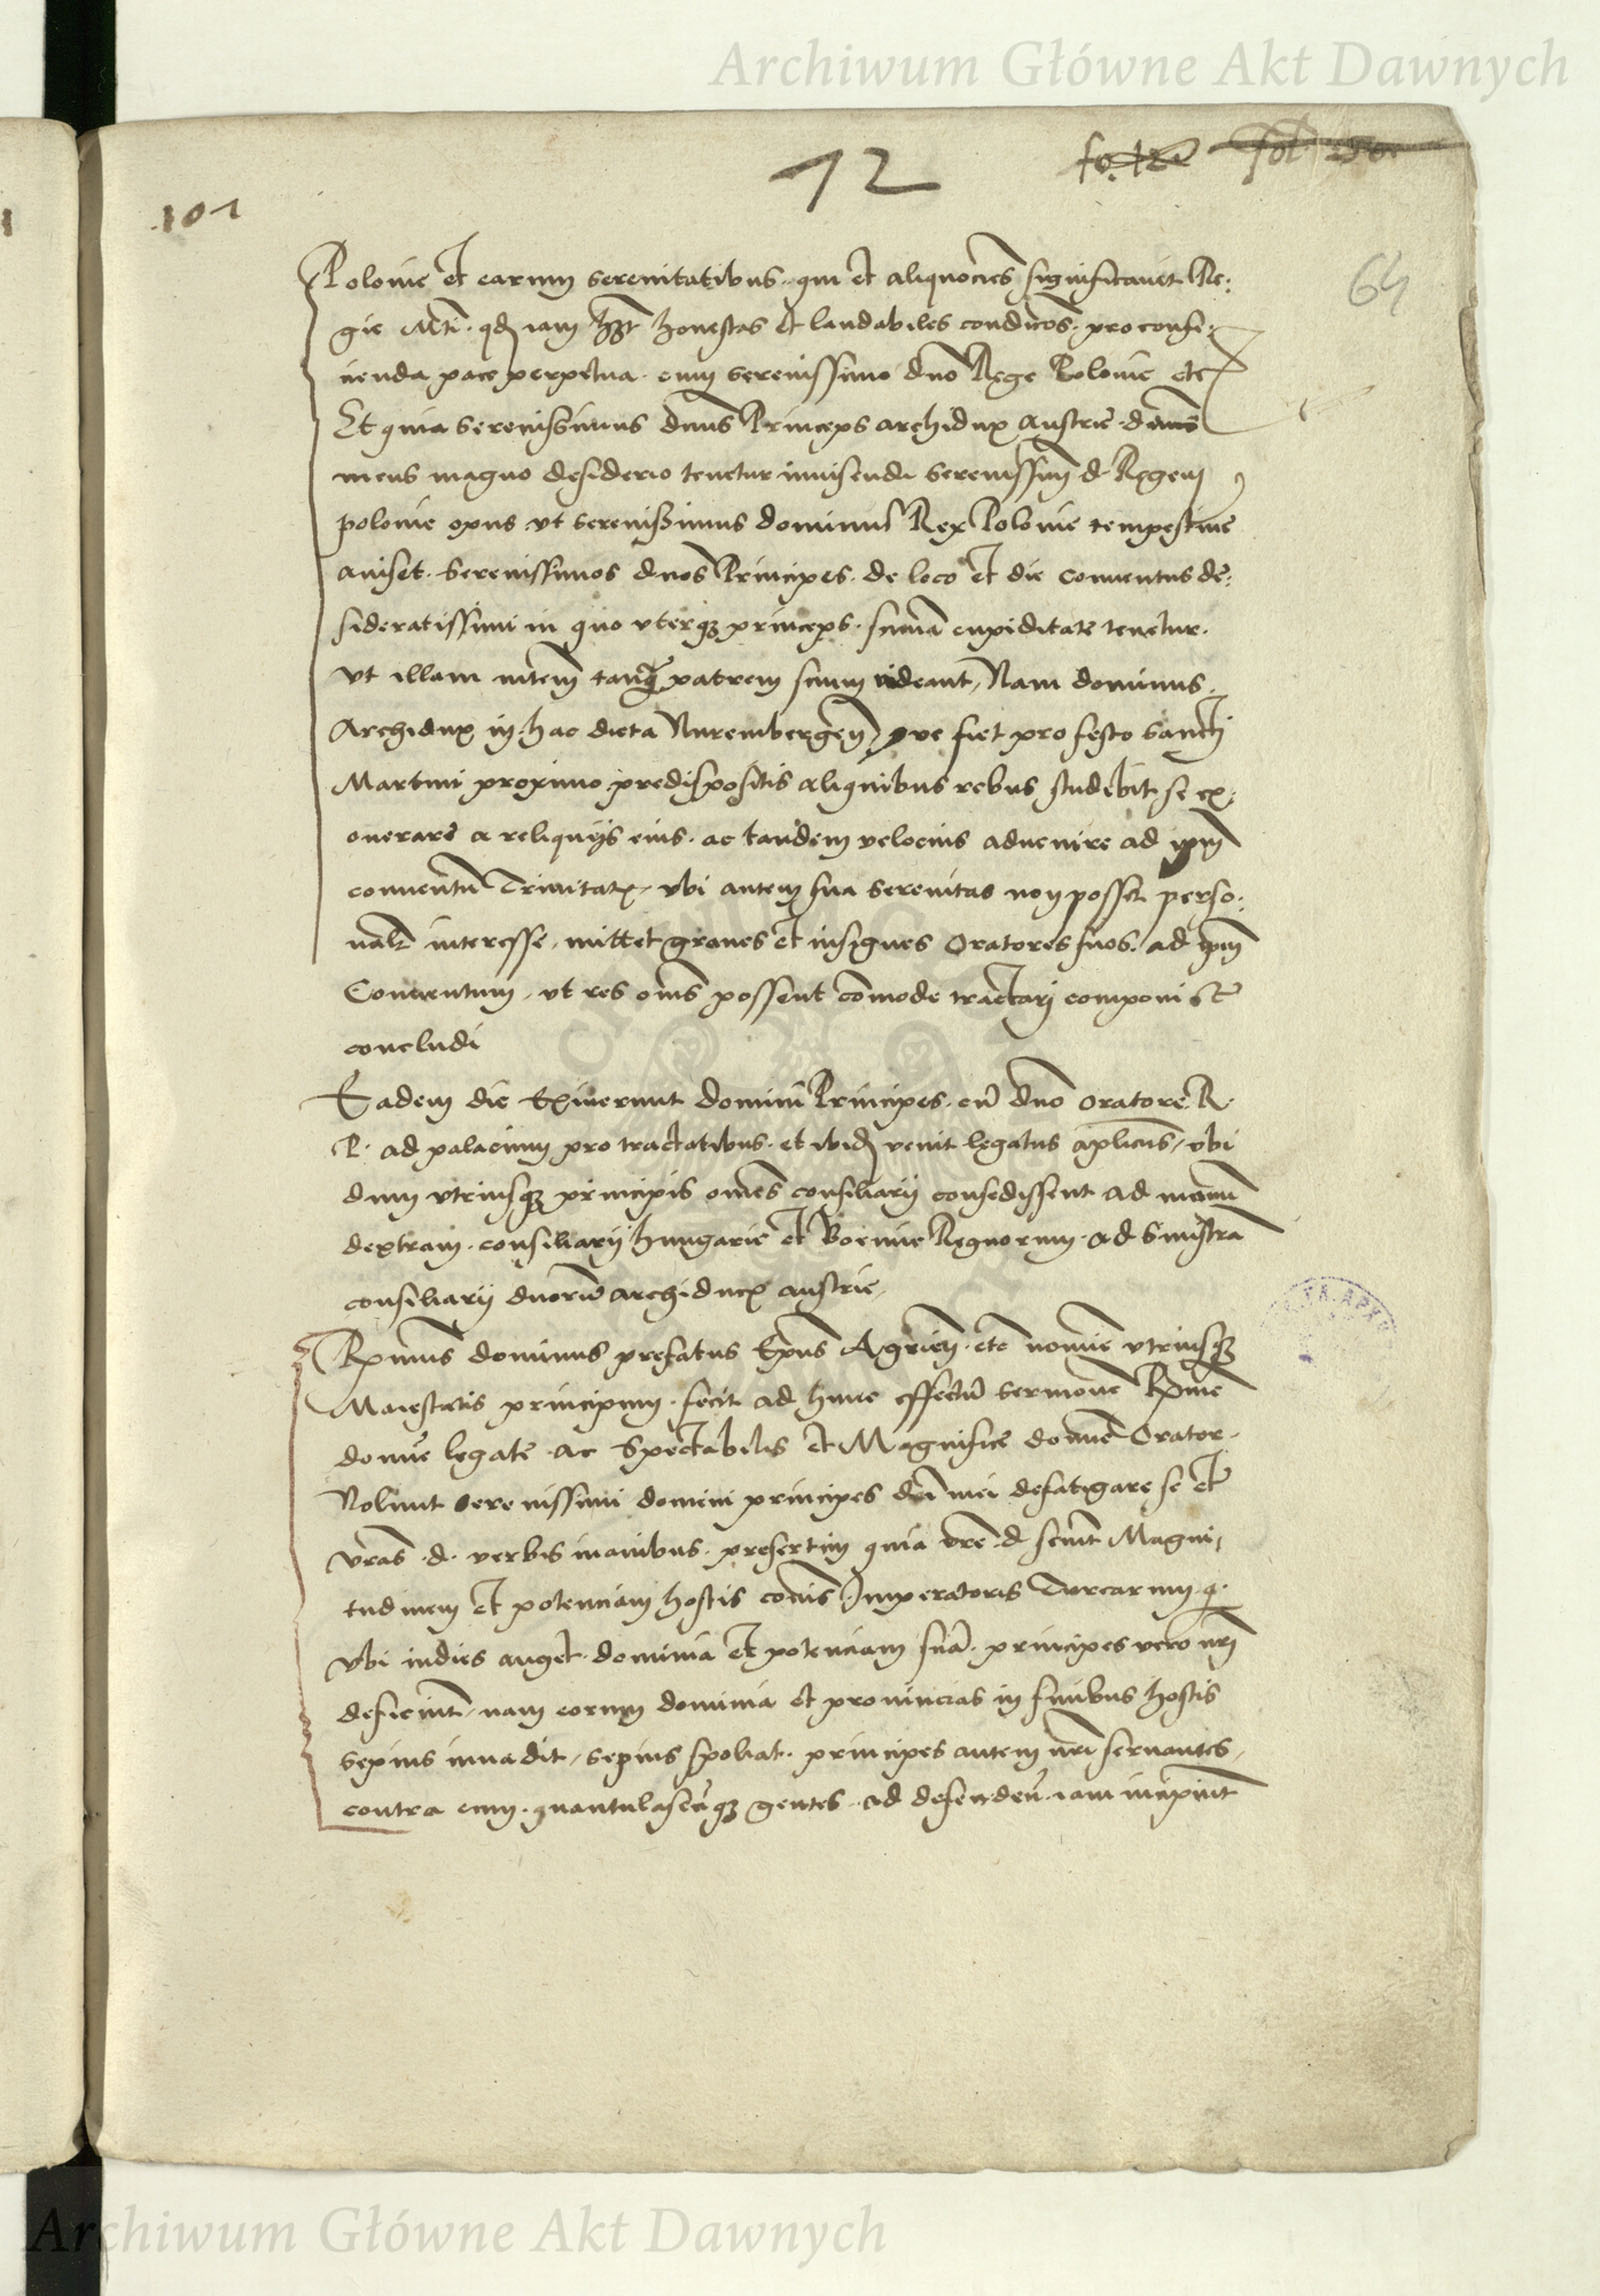 Archiwum Główne Akt Dawnych
12
101
64
Polonie et earum serenitatibus. qui et aliquocies significauit Re:
gie Mti. qd iam hzt honestas et laudabiles condicões. pro confi:
cienda pace perpetua. cum serenissimo dno Rege Polonie etc
Et quia serenissimus dnus Princeps archidux Austrie. dnus
meus magno desiderio tenetur inuisendi serenissim d Regem
polonie opus vt serenissimus dominus Rex Polonie tempestiue
auiset. serenissimos dnos Principes. de loco et die conuentus de:
sideratissimi in quo vterqz princeps. suma cupiditate tenetur.
vt illam mtem tanq patrem suum videant, Nam dominus.
Archidux in hac dieta Nurembergen, que fiet pro festo sancti
Martini proximo predispositis aliquibus rebus studebit se ex:
onerare a reliquijs eius. ac tandem velocius aduenire ad ipm
conuentu Trinitatis, vbi autem sua serenitas non posset perso:
nalr interesse, mittet graues et insignes Oratores suos. ad ipm
Conuentum, vt res oms possent comode tractari componi et
concludi
Eadem die Exiuerunt domini Principes. cu dno oratore R.
P. ad palacium pro tractatibus. et ibid venit legatus aplicus, vbi
dum vtriusqz principis omes consiliarij consedissent ad manu
dextram. consiliarij hungarie et Boemie Regnorum. ad sinistra
consiliarij duorum archiducis austrie,
Rmus dominus prefatus Epus Agrien. etc nomine vtriusqz
Maiestatis principum. fecit ad hunc effectu sermone Rme
domine legate. ac Spectabilis et Magnifice domine Orator.
Nolunt serenissimi domini principes dni mei defatigare se et
vras. d. verbis inanibus. presertim quia vre. d sciunt Magni,
tudinem et potenciam hostis cois Imperatoris Turcarum q.
vbi indies auget. dominia et potenciam sua. principes vero nri
deficiunt, nam eorum dominia et prouincias in finibus hostis
sepius inuadit, sepius spoliat. principes autem nri seruantes,
contra eum. quantulascuqz gentes. ad defendendu. iam incipiunt
Archiwum Główne Akt Dawnych